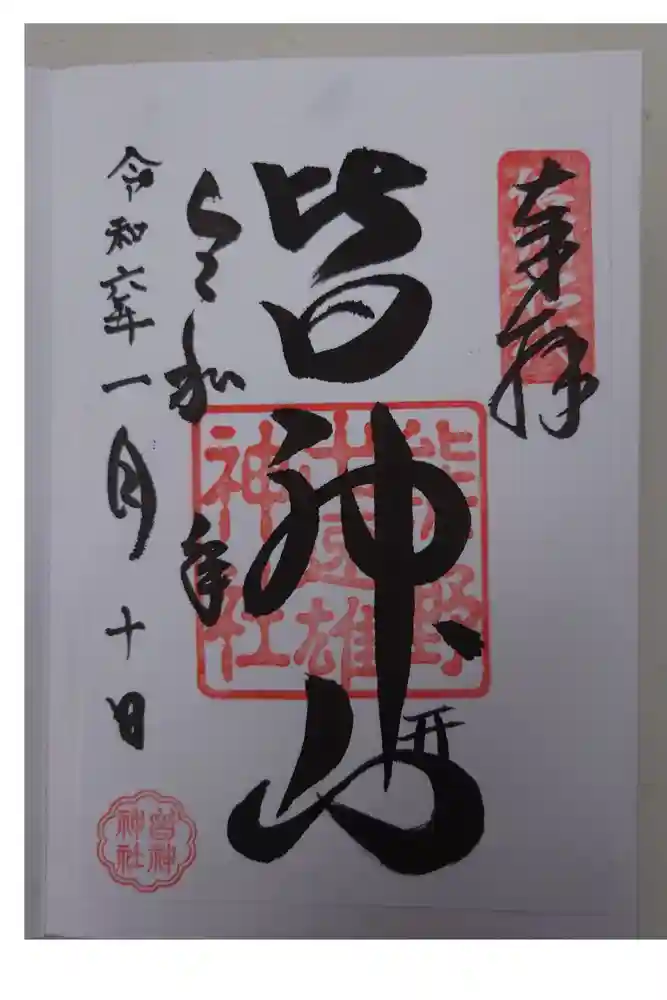 奉拝
皆神山
开
熊野
出速雄
神社
令和
年
令和六年一月十日
皆神
神社